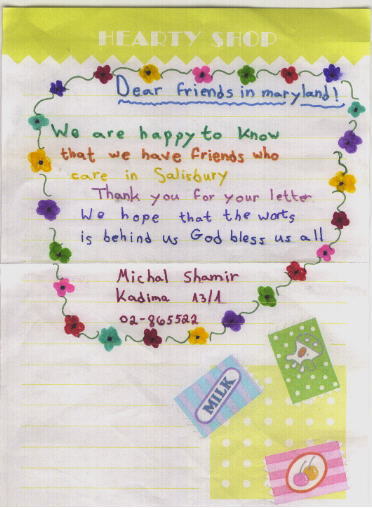 HEARTY SHOP
Dear friends in maryland!
We are happy to know
that we have friends who
care in Salisbury
Thank you for your letter
We hope that the worts
is behind us God bless us all
Michal Shamir
Kadima 13/1
02-865522
MILK